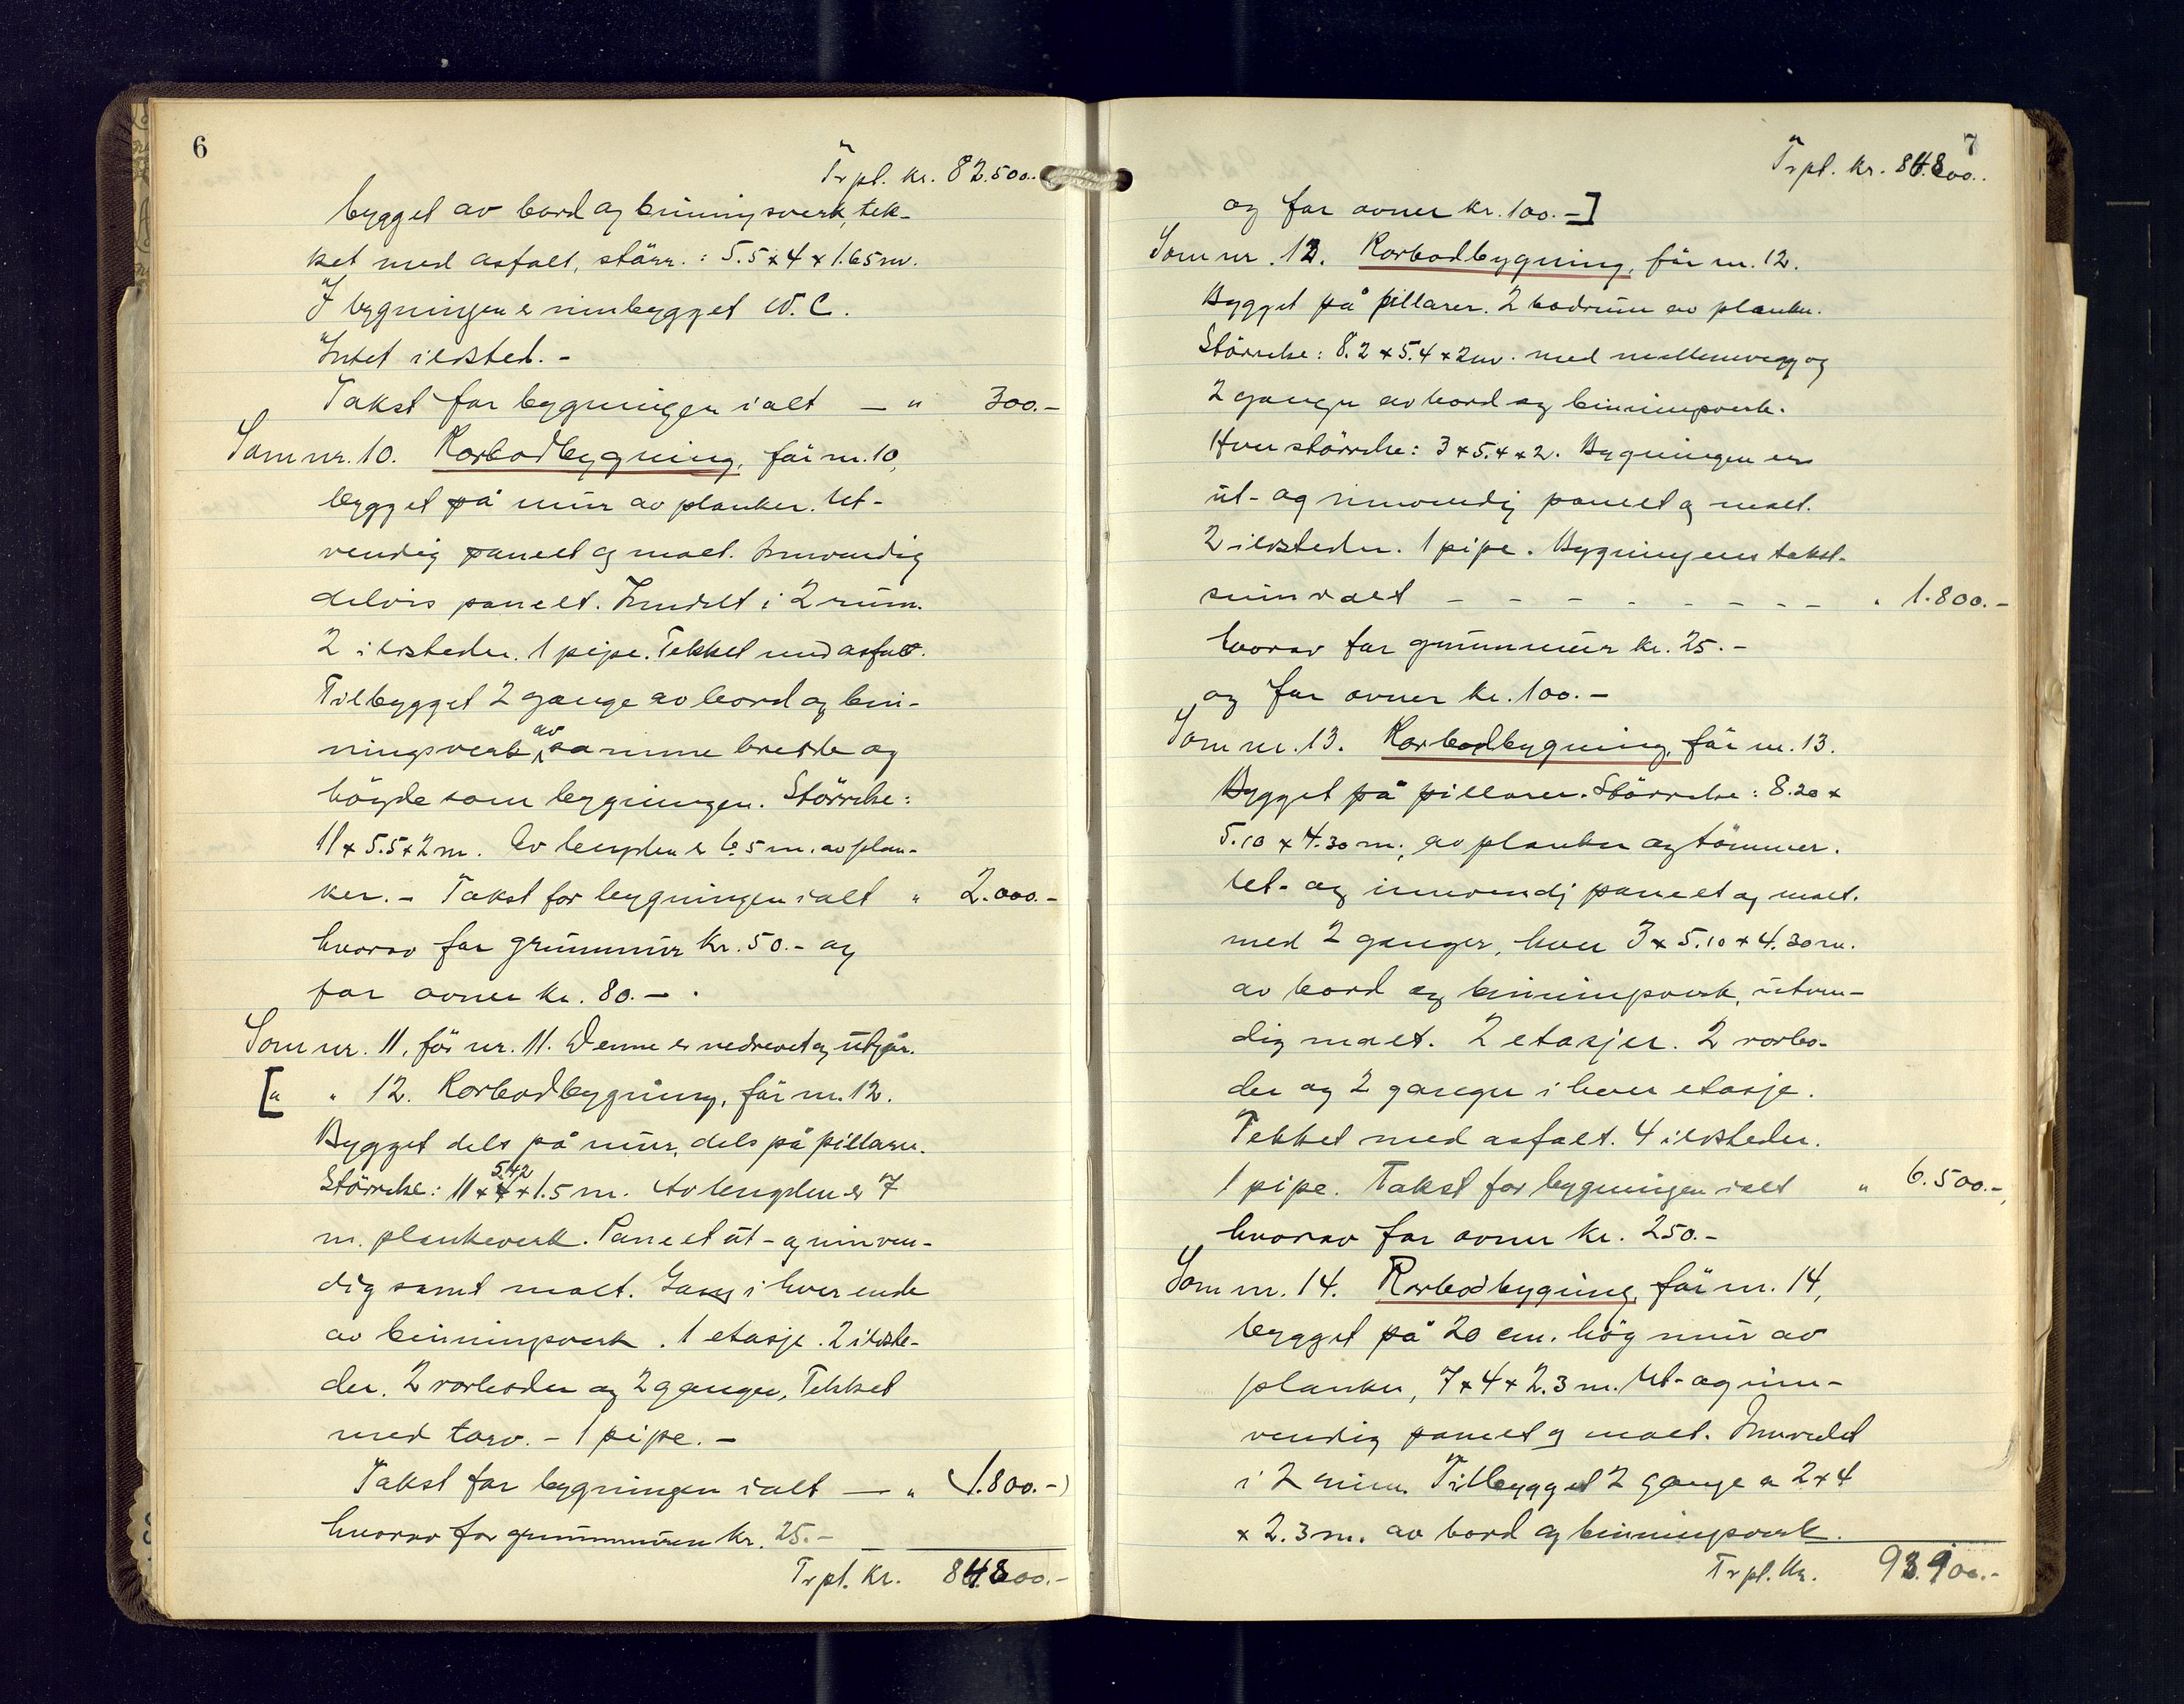 6
Trpt. kr. 82.500.-
bygget av bord og binningsverk, tek-
ket med asfalt, störr.: 5.5 x 4 x 1.65 m.
I bygningen er innbygget W.C.
Intet ildsted. -
Takst for bygningen ialt — " 300.-
Som nr. 10. Rorbodbygning, för nr. 10,
bygget på mur av planker. Ut-
vendig panelt og malt. Innvendig
delvis panelt. Inndelt i 2 rum.
2 ildsteder. 1 pipe. Tekket med asfalt.
Tilbygget 2 gange av bord og bin-
ningsverk av samme bredde og
höyde som bygningen. Störrelse:
11 x 5.5 x 2 m. Av lengden er 6.5 m. av plan-
ker. - Takst for bygningen ialt " 2.000.-
hvorav for grunnmur kr. 50.- og
for ovner kr. 80.- .
Som nr. 11, för nr. 11. Denne er nedrevet og utgår.
[" " 12. Rorbodbygning, för nr. 12.
Bygget dels på mur, dels på pillarer.
5.42
Störrelse: 11 x 4 x 1.5 m. Av lengden er 7
m. plankeverk. Panelt ut- og innven-
dig samt malt. Gang i hver ende
av binningsverk. 1 etasje. 2 ildste-
der. 2 rorboder og 2 ganger, Tekket
med torv. - 1 pipe. -
Takst for bygningen ialt — " (1.800.-)
hvorav for grunnmuren kr. 25.-
Trpt. kr. 84.800.-
7
Trpt. kr. 84.800.-
og for ovner kr. 100.-]
Som nr. 12. Rorbodbygning, för nr. 12.
Bygget på pillarer. 2 bodrum av planker.
Störrelse: 8.2 x 5.4 x 2 m. med mellemvegg og
2 ganger av bord og binningsverk.
Hver störrelse: 3 x 5.4 x 2. Bygningen er
ut- og innvendig panelt og malt.
2 ildsteder. 1 pipe. Bygningens takst-
sum ialt - - - - - - - - " 1.800.-
hvorav for grunnmur kr. 25.-
og for ovner kr. 100.-
Som nr. 13. Rorbodbygning, för nr. 13.
Bygget på pillarer. Störrelse: 8.20 x
5.10 x 4.30 m., av planker og tömmer.
Ut- og innvendig panelt og malt.
med 2 ganger, hver 3 x 5.10 x 4.30 m.
av bord og binningsverk, utven-
dig malt. 2 etasjer. 2 rorbo-
der og 2 ganger i hver etasje.
Tekket med asfalt. 4 ildsteder.
1 pipe. Takst for bygningen ialt " 6.500.-,
hvorav for ovner kr. 250.-
Som nr. 14. Rorbodbygning, för nr. 14,
bygget på 20 cm. hög mur av
planker, 7 x 4 x 2.3 m. Ut- og inn-
vendig panelt og malt. Innredet
i 2 rum. Tilbygget 2 gange a 2 x 4
x 2.3 m. av bord og binningsverk.
Trpt. kr. 93.100.-